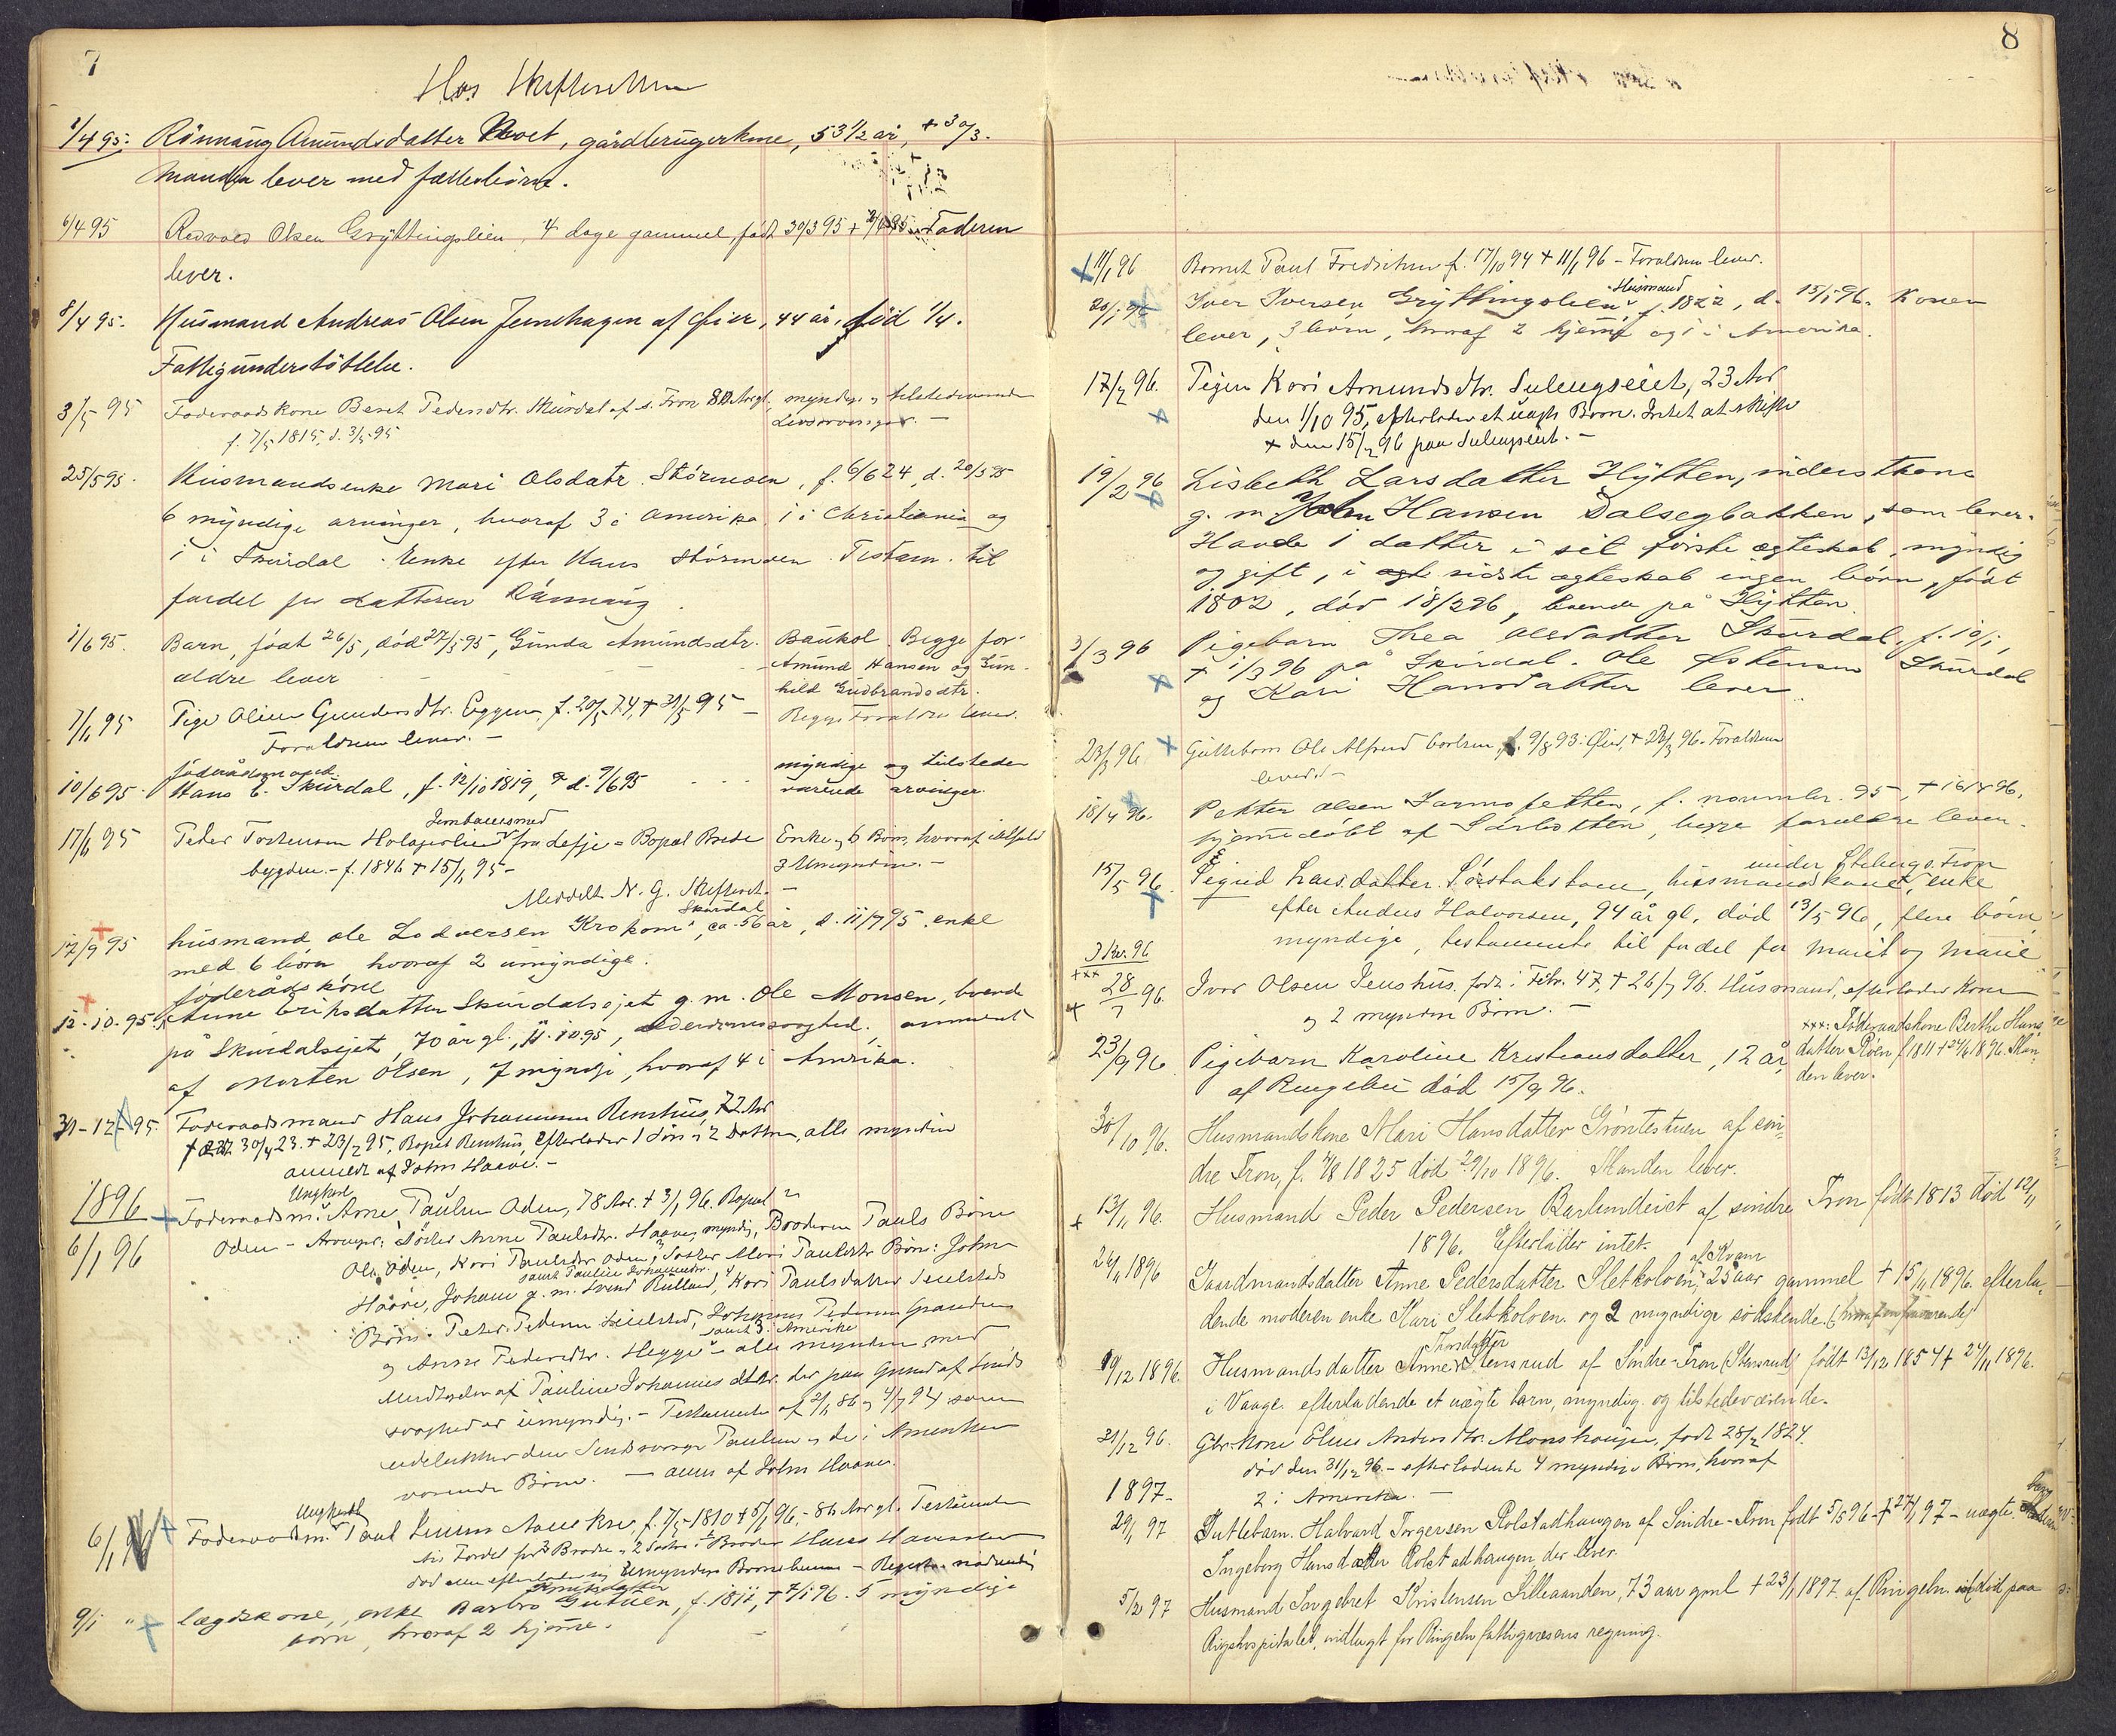 7
Hos
1/4 95. Rönnaug Amundsdatter, gårdbrugerkone, 53 1/2 år, + 30/3.
Manden lever med fællesbörn.
6/4 95 Olsen Gryttingslien, 4 dage gammel født 30/3 95 + Faderen
lever.
8/4 95. Husmand Andreas Olsen af Öier, 44 år, död 1/4.
Fattigunderstöttelse.
3/5 95 Foderaadskone Beret Pedersdtr. Skurdal af s. Fron 80 Aar gl. myndige og tilstedeværende
f. 7/5 1815, d. 3/5 95 Livsarvinger. –
25/5 95. Husmandsenke Mari Olsdatr. Störmoen, f. 6/6 24, d. 20/5 95
6 myndige arvinger, hvoraf 3 i Amerika, 1 i Christiania og
1 i Skurdal. Enke efter Hans Störmoen. Testam. til
fordel for datteren Rönnaug.
1/6 95. Barn, födt 26/5, död 27/5 95, Gunda Amundsdtr. Baukol. Begge for-
ældre lever – – – Amund Hansen og Gun-
hild Gudbrandsdtr.
7/6 95 Pige Oline Gundersdtr. Eggen, f. 20/5 74, + 31/5 95 – Begge Forældre lever.
Forældrene lever. –
föderådsmand
10/6 95. Hans E. Skurdal, f. 12/10 1819, d. 9/6 95 – – – myndige og tilstede
værende arvinger.
17/6 95 Peder Tostensen fra Lesje – Bopæl Brede Enke og 6 Börn, hvoraf
bygden. – f. 1846 + 15/6 95 – 3 Umyndige. –
Meddelt N. G. Skifteret. –
Skurdal
17/9 95 husmand Ole Lodversen Krokom, ca. 56 år, d. 11/7 95. enke
med 6 börn hvoraf 2 umyndige.
föderådskone
12-10-95. Anne Eriksdatter Skurdalsejet g. m. Ole Monsen, boende
på Skurdalsejet, 70 år gl., 11.10.95, alderdomssvaghed. anmeldt
af Morten Olsen, 7 myndige, hvoraf 4 i Amerika.
31-12-95. Foderaadsmand Hans Johannesen Renshus, 72 Aar
30/4 23. + 23/12 95, Bopæl Renshus, Efterlader 1 Sön og 2 Döttre, alle myndige
anmeldt af John Haave. –
1896 Ungkarl
Foderaadsm. Arne Paulsen Öden, 78 Aar. + 3/1 96. Bopæl
6/1 96 Öden – Arvinger: Söster Anne Paulsdtr. Haave, myndig, Broderen Pauls Börn
Ole Öden, Kari Paulsdtr. Öden, Söster Mari Paulsdtr. Börn: John
samt Pauline Johannesdtr.
Haave, Johan g. m. Svend Rulland, Kari Paulsdatter Seielstads
Börn: Peder Pedersen Seielstad, Johannes Pedersen
samt 3 i Amerika
og Anne Pedersdtr. Hegge – alle myndige, med
Undtagelse af Pauline Johannesdtr. der paa Grund af Sinds
svaghed er umyndig. – Testamente af 86 og 4/7 94 som
udelukker den Sindssvage Pauline og de i Amerika
værende Börn. – anm. af John Haave.
Ungkarl
6/1 Foderaadsm. Poul f. 1810 + 5/1 96, – 86 Aar gl. Testamente
til Fordel for 3 Brödre og 2 Söstre. Broder Hans
död men efterlader sig Umyndige
Knutsdatter
9/1 " lægdskone, enke Barbro f. 1817, + 7/1 96. 5 myndige
börn, hvoraf 2 hjemme.
8
11/1 96 Barnet Paul Fredriksen f. 17/10 94 + 11/1 96 – Forældrene lever.
Husmand
20/1 96 Iver Iversen Gryttingslien f. 1822, d. 15/1 96. Konen
lever, 3 börn, hvoraf 2 hjemme og 1 i Amerika.
17/2 96. Pigen Kari Amundsdtr. Sulengseiet, 23 Aar
den 1/10 95, efterlader et uægte Barn. Intet at skifte
+ den 15/2 96 paa Sulengseiet. –
19/2 96 Lisbeth Larsdatter Hytten, inderstkone
g. m. John Hansen Dalsegbakken, som lever.
Havde 1 datter i sit förste ægteskab, myndig
og gift, i sidste ægteskab ingen börn, födt
1802, död 18/2 96, boende på Hytten.
3/3 96 Pigebarn Thea Olsdatter Skurdal, f. 10/1,
+ 1/3 96 på Skurdal. Ole Östensen Skurdal
og Kari Hansdatter lever.
23/3 96 Guttebarn Ole Alfred Carlsen, f. 9/8 93 i Öier, + 23/3 96. Forældrene
lever. –
18/4 96. Petter Olsen f. novembr. 95, + 16/4 96.
hjemmedöbt af begge forældre lever.
under Steberg s. Fron
15/5 96. Sigrid Larsdatter husmandskone, enke
efter Anders Halvorsen, 94 år gl. död 13/5 96, flere börn,
myndige, testamente til fordel for Marit og Marie
xxx
28/7 96. Iver Olsen Jenshus. födt i Febr. 47, + 26/7 96. Husmand, efterlader Kone
og 2 myndige Börn. –
xxx: Föderaadskone Berthe Hans-
datter Röen, f 1811 + 1896. Man-
den lever.
23/9 96. Pigebarn Karoline Kristiansdatter, 12 år,
af Ringebu död 15/9 96.
30/10 96. Husmandskone Mari Hansdatter Gröntestuen af sön-
dre Fron, f. 1825 död 29/10 1896. Manden lever.
13/11 96. Husmand Peder Pedersen af söndre Fron födt 1813 död 12/11
1896. Efterlader intet.
af Kvam
26/11 1896 Gaardmandsdatter Anne Pedersdatter Sletkolven, 25 aar gammel + 15/11 1896. efterla-
dende moderen enke Mari Sletkolven. og 2 myndige södskende.
Thordatter
9/12 1896. Husmandsdatter Anne Stensrud af Söndre-Fron (Stensrud) födt 13/12 1854 + 27/11 1896.
i Vaage. efterladende et uægte barn, myndig. og tilstedeværende.
31/12 96. Gbr. kone Eline Andersdtr. Monshaugen, födt 28/2 1824.
död den 31/12 96 – efterladende 4 myndige Börn, hvoraf
1897. 2 i Amerika. –
29/1 97 Guttebarn. Halvard Torgersen Rolstadhaugen af Söndre-Fron født 5/5 96 + 27/1 97 – uægte.
Ingeborg Hansdatter Rolstadhaugen, der lever.
5/2 97 Husmand Torgebret Kristensen Lilleaanden, 73 aar gml + 23/1 1897. af Ringebu. død paa
Rigshospitalet, indlagt for Ringebu fattigvæsens regning.